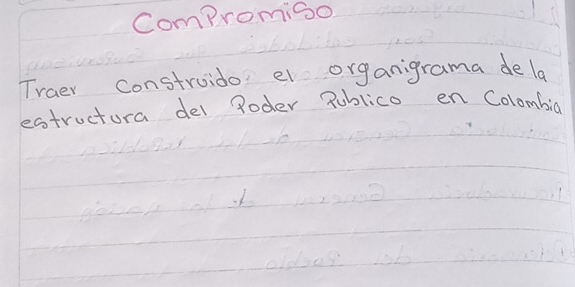 ComPromiso
Traer construido el organigrama de la
estructura del Poder Publico en Colombia